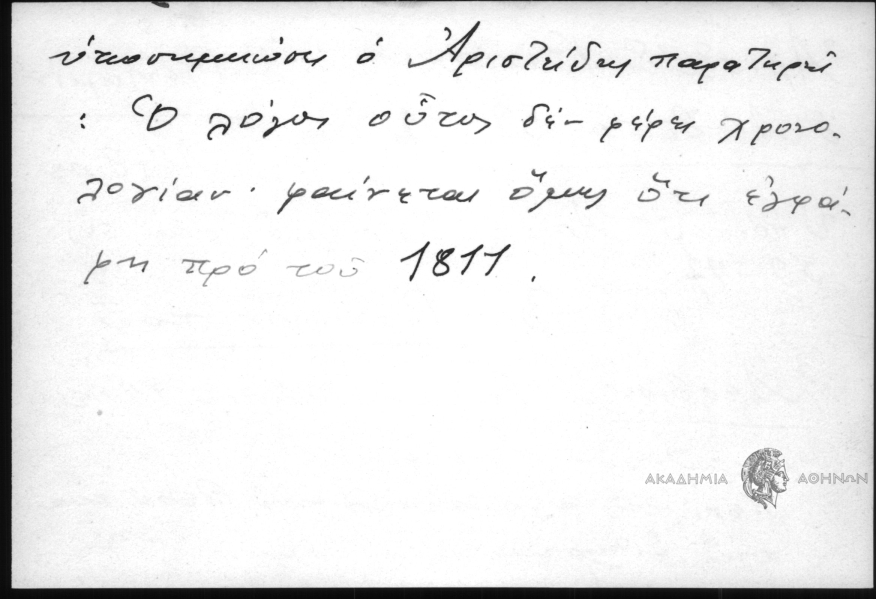 ὑποσημειώσει ὁ Ἀριστείδης παρατηρεῖ
: Ὁ λόγος οὗτος δέν φέρει χρονο-
λογίαν· φαίνεται ὅμως ὅτι ἐγρά-
φη πρό τοῦ 1811.
ΑΚΑΔΗΜΙΑ ΑΘΗΝΩΝ